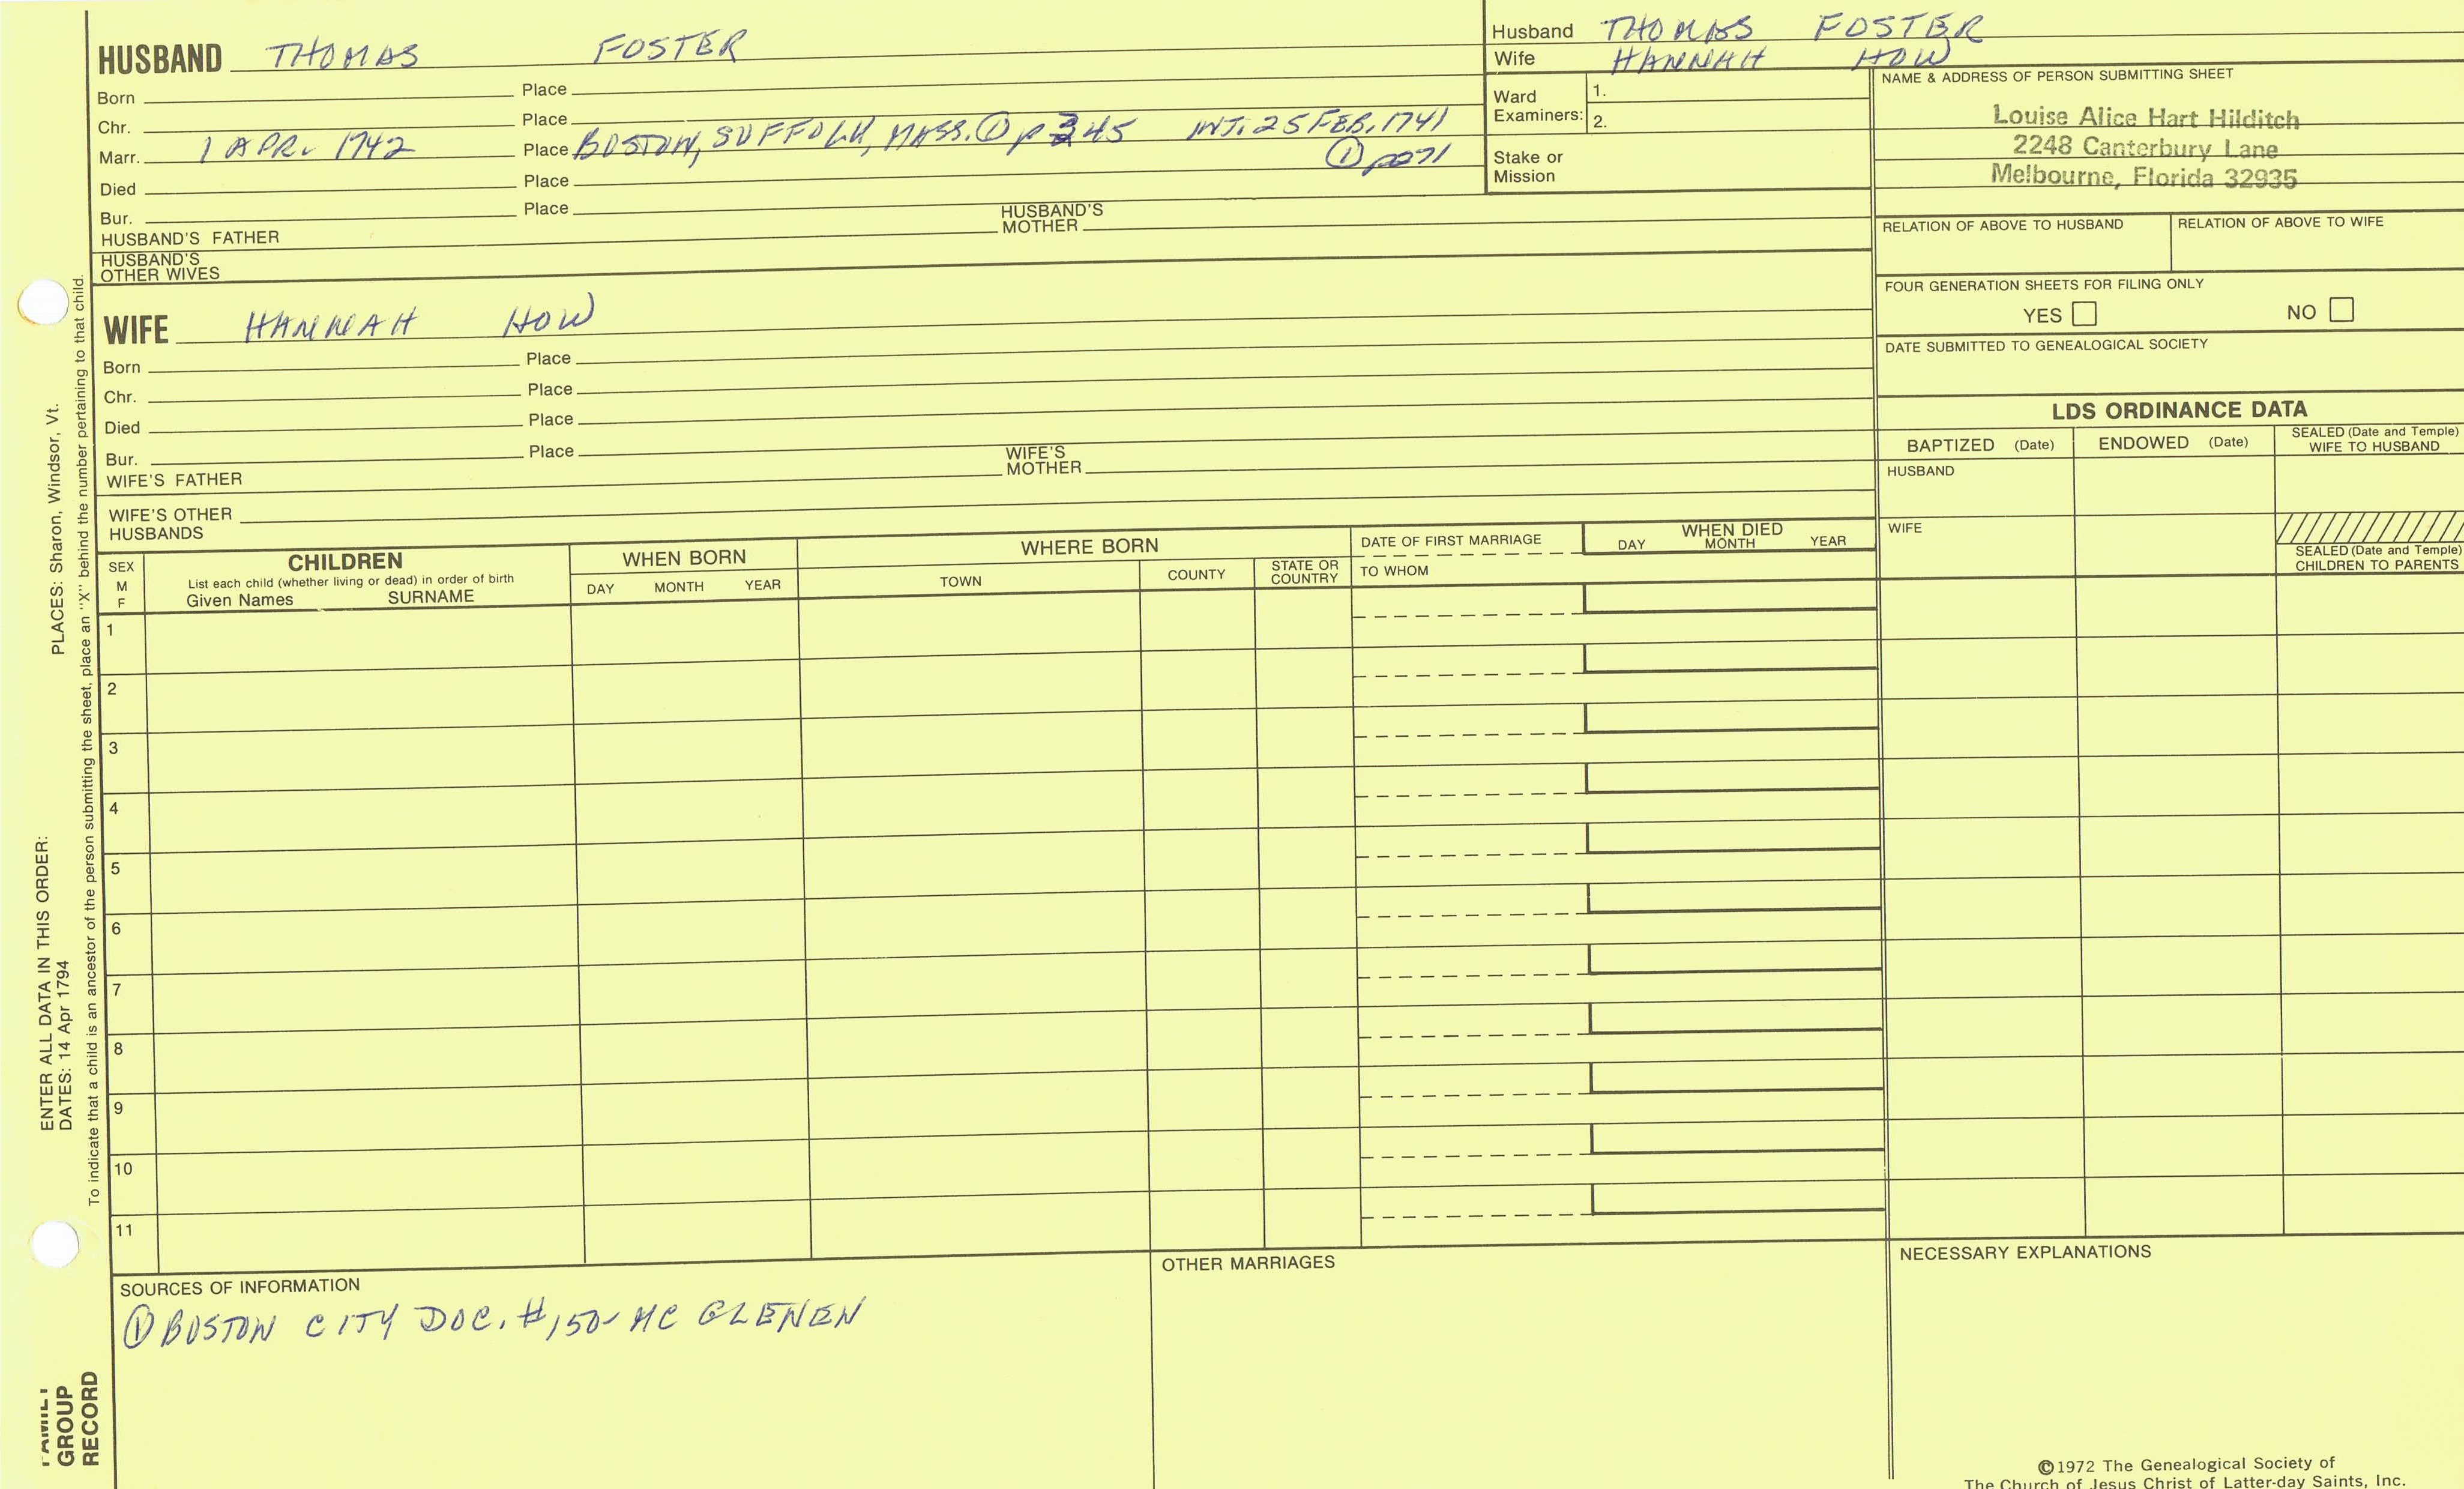 HUSBAND THOMAS FOSTER
Born Place
Chr. Place
Marr. 1 APR. 1742 Place BOSTON, SUFFOLK, MASS. ① p 245 INT: 25 FEB. 1741
① p271
Died Place
Bur. Place
HUSBAND'S FATHER HUSBAND'S MOTHER
HUSBAND'S OTHER WIVES
Husband THOMAS FOSTER
Wife HANNAH HOW
Ward Examiners: 1.
2.
Stake or Mission
NAME & ADDRESS OF PERSON SUBMITTING SHEET
Louise Alice Hart Hilditch
2248 Canterbury Lane
Melbourne, Florida 32935
RELATION OF ABOVE TO HUSBAND RELATION OF ABOVE TO WIFE
FOUR GENERATION SHEETS FOR FILING ONLY
YES NO
DATE SUBMITTED TO GENEALOGICAL SOCIETY
WIFE HANNAH HOW
Born Place
Chr. Place
Died Place
Bur. Place
WIFE'S FATHER WIFE'S MOTHER
WIFE'S OTHER HUSBANDS
LDS ORDINANCE DATA
BAPTIZED (Date) ENDOWED (Date) SEALED (Date and Temple) WIFE TO HUSBAND
HUSBAND
WIFE
SEALED (Date and Temple) CHILDREN TO PARENTS
SEX M F
CHILDREN
List each child (whether living or dead) in order of birth
Given Names SURNAME
WHEN BORN
DAY MONTH YEAR
WHERE BORN
TOWN COUNTY STATE OR COUNTRY
DATE OF FIRST MARRIAGE
TO WHOM
WHEN DIED
DAY MONTH YEAR
1
2
3
4
5
6
7
8
9
10
11
SOURCES OF INFORMATION
① BOSTON CITY DOC. #150- MC GLENEN
OTHER MARRIAGES
NECESSARY EXPLANATIONS
©1972 The Genealogical Society of
The Church of Jesus Christ of Latter-day Saints, Inc.
ENTER ALL DATA IN THIS ORDER:
DATES: 14 Apr 1794 PLACES: Sharon, Windsor, Vt.
To indicate that a child is an ancestor of the person submitting the sheet, place an "X" behind the number pertaining to that child.
FAMILY
GROUP
RECORD